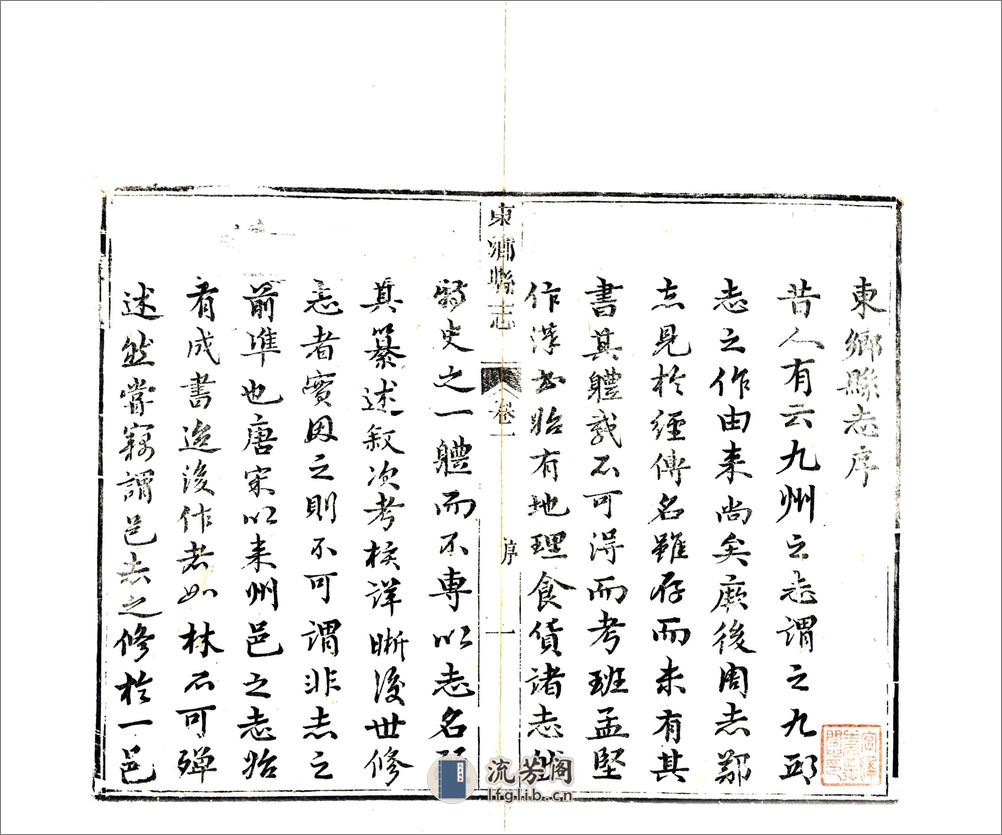 東鄉縣志序
昔人有云九州之志謂之九邱
志之作由来尚矣厥後周志鄭
志見於經傳名雖存而未有其
書其體裁不可得而考班孟堅
作漢書始有地理食貨諸志雖
東鄉縣志
卷一
序
一
史之一體而不專以志名
其纂述叙次考核詳晰後世修
志者實因之則不可謂非志之
前準也唐宋以来州邑之志始
有成書迨後作者如林不可殫
述然嘗竊謂邑志之修於一邑
流芳阁
lfglib.cn